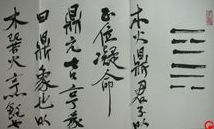 木火鼎君子以
正位凝命
鼎元吉亨彖
曰鼎象也以
木巽火亨飪也